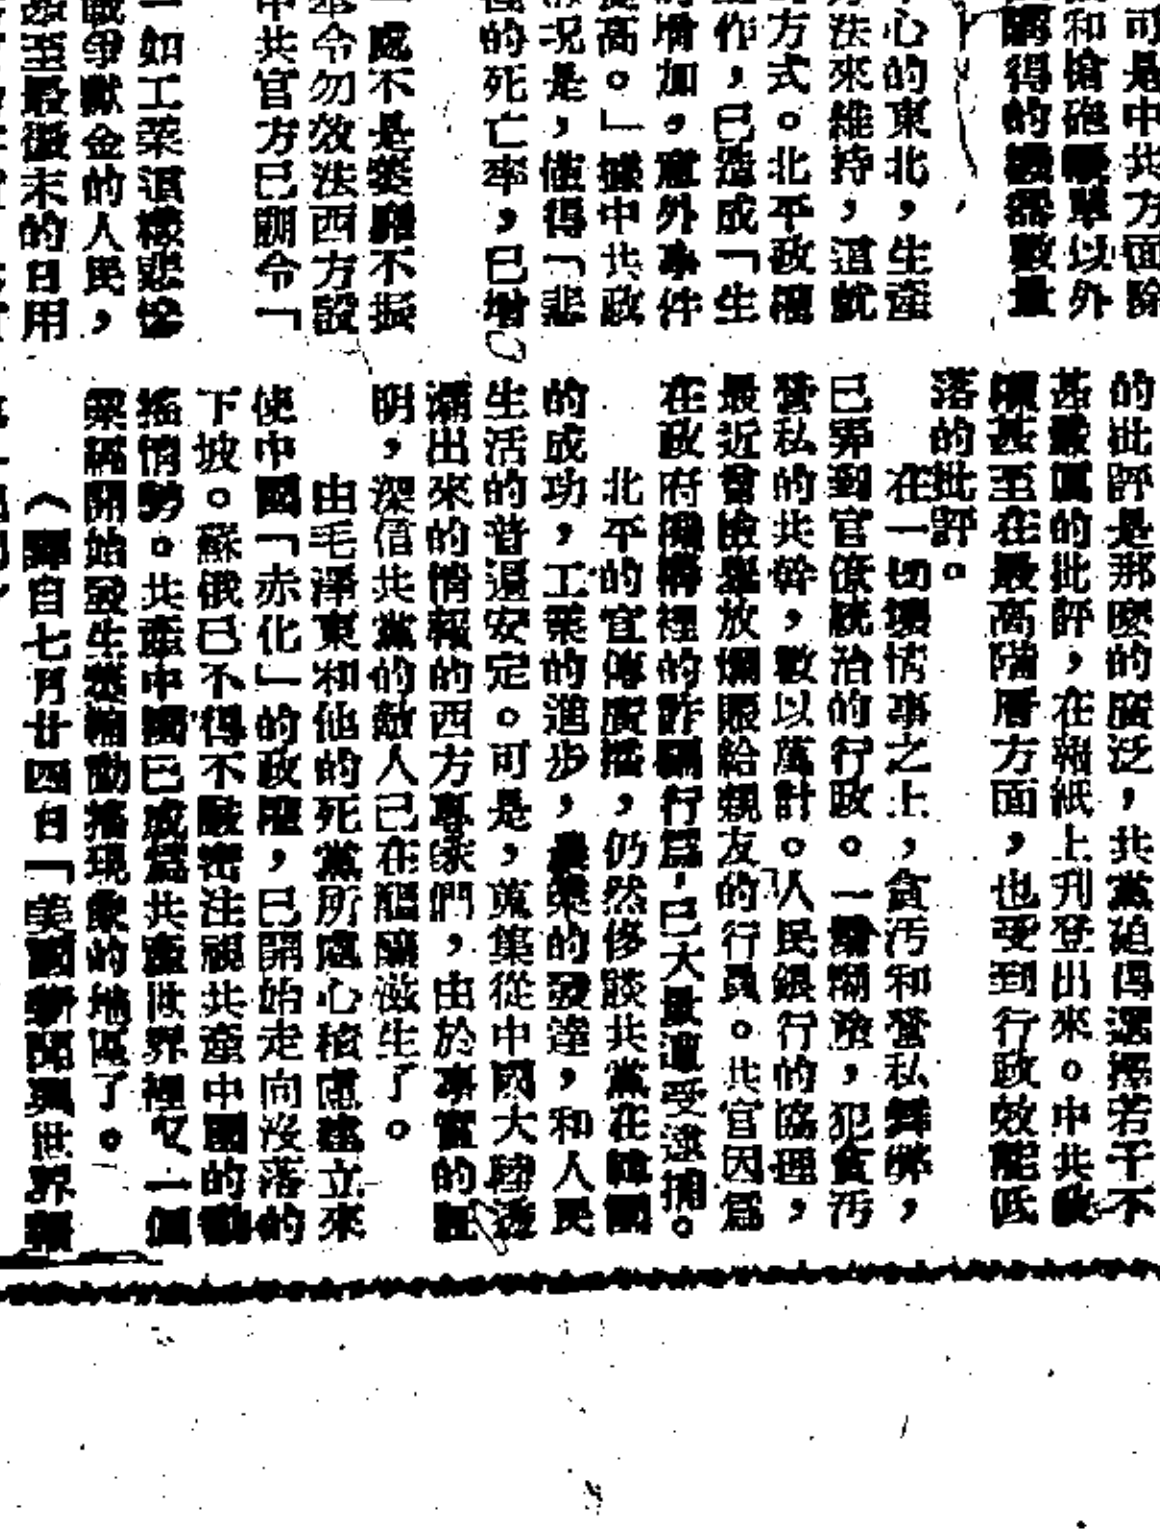 可是中共方面除
和槍砲彈單以外
得的機器數量
心的東北，生產
法來維持，這就
方式。北平政權
作，已造成「生
增加，意外事件
高。」據中共政
況是，使得「悲
的死亡率，已增
處不是萎靡不振
令勿效法西方設
中共官方已訓令「
一如工業這樣悲慘
戰爭獻金的人民，
至最微末的日用
的批評是那麼的廣泛，共黨迫得選擇若干不
甚嚴厲的批評，在報紙上刊登出來。中共政
權甚至在最高階層方面，也受到行政效能低
落的批評。
在一切壞情事之上，貪污和營私舞弊，
已弄到官僚統治的行政。一黨糊塗，犯貪污
營私的共幹，數以萬計。人民銀行的協理，
最近曾檢舉放爛賬給親友的行員。共官因為
在政府機構裡的詐騙行為，已大量遭受逮捕。
北平的宣傳廣播，仍然侈談共黨在韓國
的成功，工業的進步，農業的發達，和人民
生活的普遍安定。可是，蒐集從中國大陸透
漏出來的情報的西方專家們，由於事實的證
明，深信共黨的敵人已在醞釀滋生了。
由毛澤東和他的死黨所處心積慮建立來
使中國「赤化」的政權，已開始走向沒落的
下坡。蘇俄已不得不嚴密注視共產中國的動
搖情勢。共產中國已成為共產世界裡又一個
業經開始發生基輔動搖現象的地區了。
（譯自七月廿四日「美國新聞與世界報